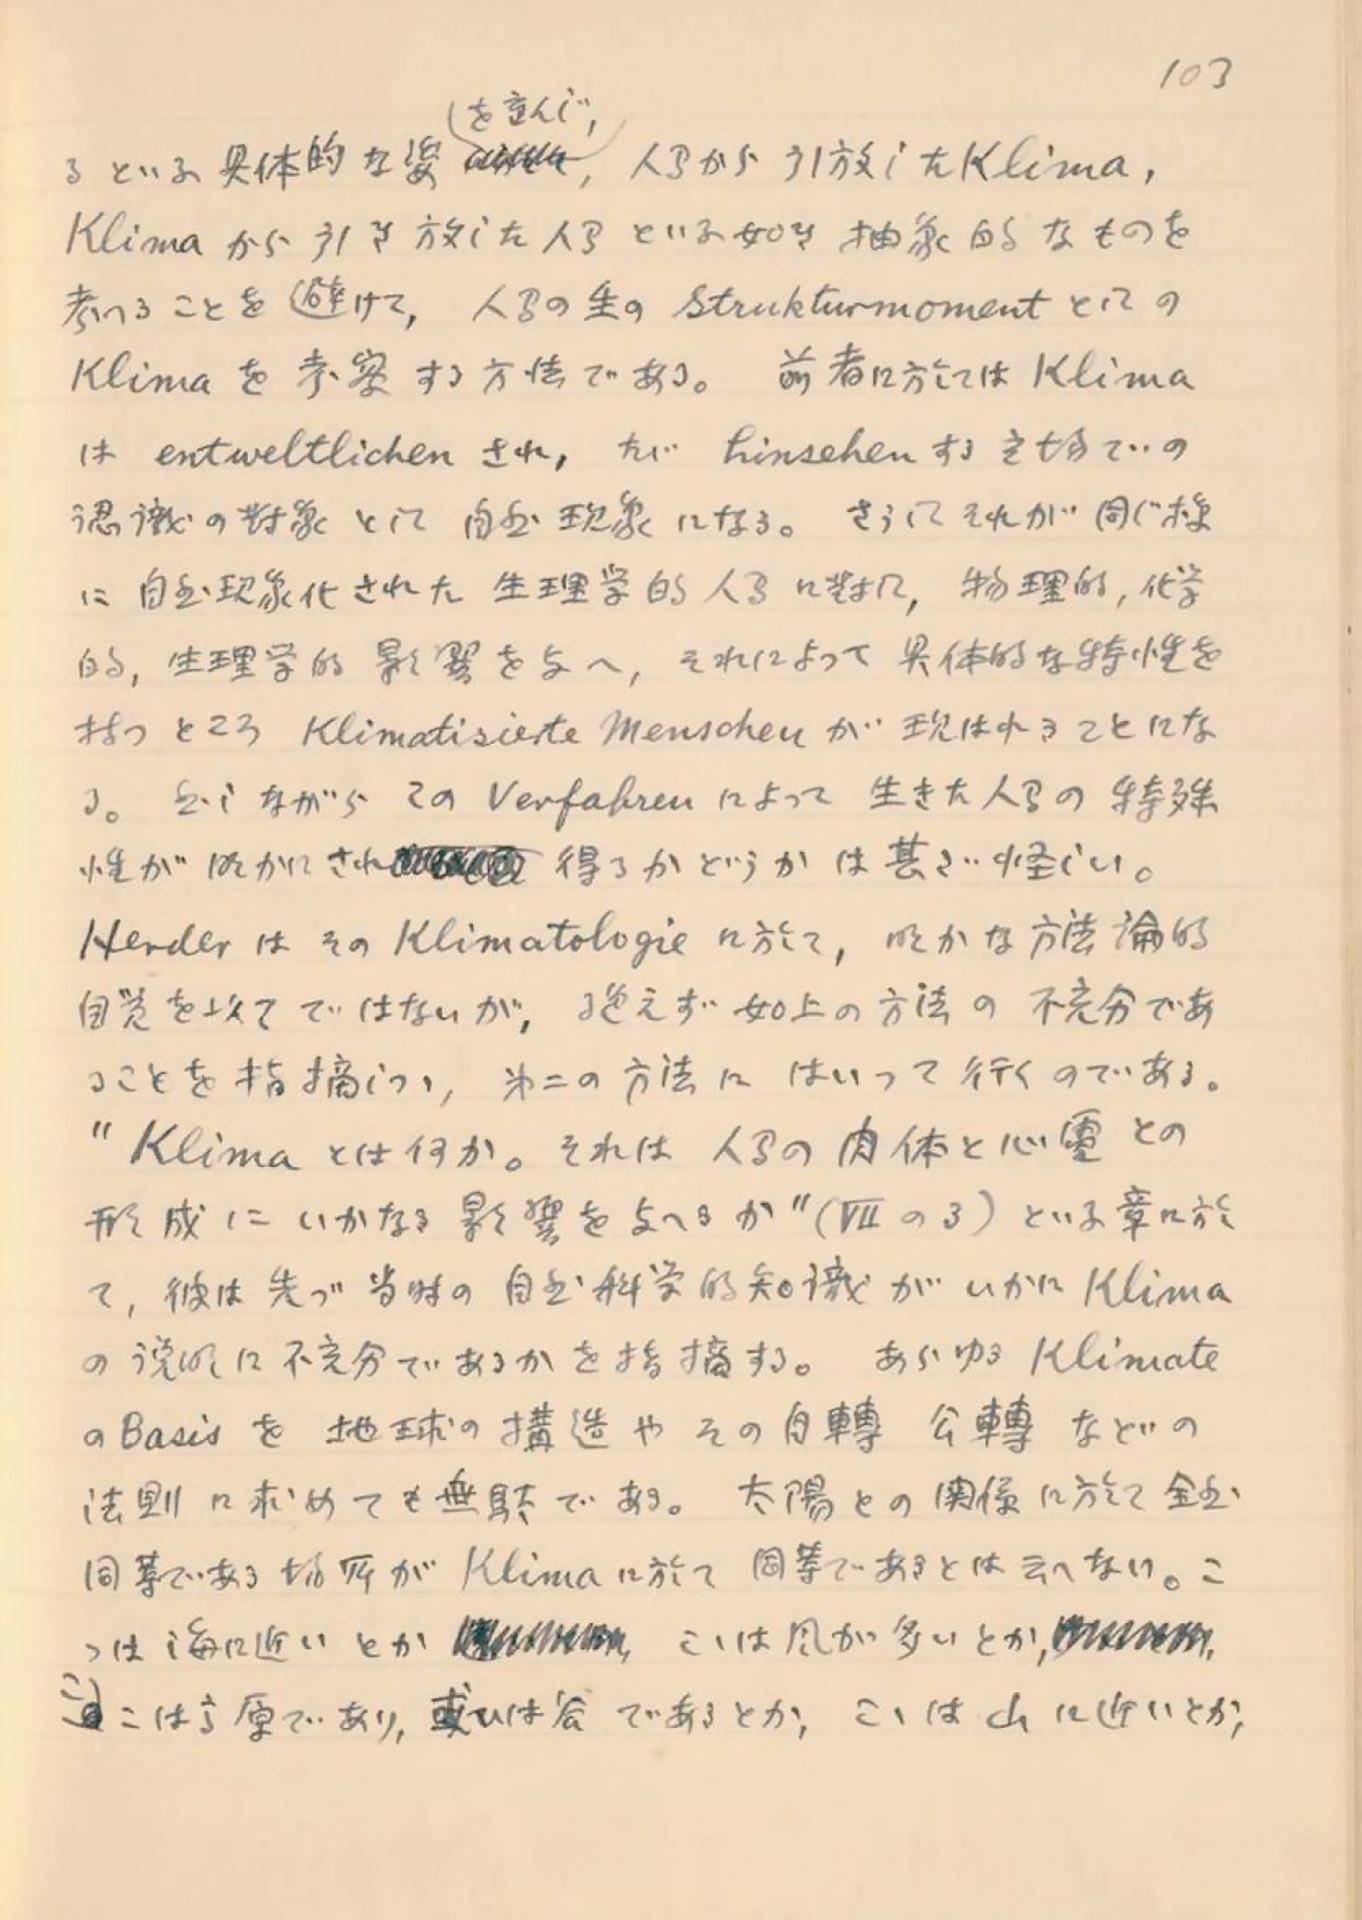 103
を重んじ,
るといふ具体的な姿, 人間から引放したKlima,
Klimaから引き放した人間といふ如き抽象的なものを
考へることを避けて, 人間の生のStrukturmomentとしての
Klimaを考察する方法である。 前者に於てはKlima
は entweltlichen され, たゞ hinsehen する立場での
認識の対象として自然現象になる。 さうしてそれが同じ様
に自然現象化された生理学的人間に対し, 物理的, 化学
的, 生理学的影響を与へ, それによって具体的な特性を
持つところ Klimatisierte Menschen が現はれることにな
る。 然しながらこの Verfahren によって生きた人間の特殊
性が明かにされ得るかどうかは甚だ怪しい。
Herder はその Klimatologie に於て, 明かな方法論的
自覚を以てではないが, 絶えず如上の方法の不充分であ
ることを指摘しつゝ, 第二の方法にはいって行くのである。
"Klima とは何か。それは人間の肉体と心霊との
形成にいかなる影響を与へるか"(VIIの3)といふ章に於
て, 彼は先づ当時の自然科学的知識がいかに Klima
の説明に不充分であるかを指摘する。 あらゆる Klimate
の Basis を地球の構造やその自轉公轉などの
法則に求めても無駄である。 太陽との関係に於て全然
同等である場所が Klima に於て同等であるとは云へない。こ
ゝは海に近いとか こゝは風が多いとか,
こゝは高原であり, 或ひは谷であるとか, こゝは山に近いとか,